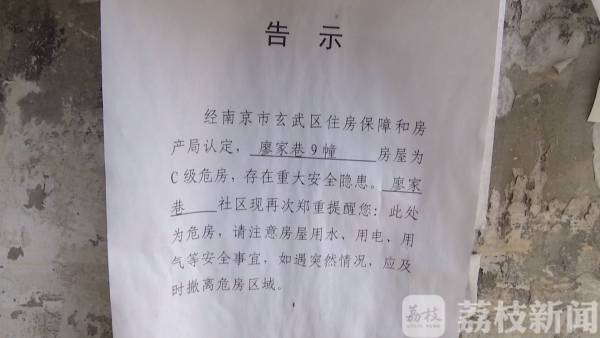 告示
经南京市玄武区住房保障和房
产局认定，廖家巷9幢 房屋为
C级危房，存在重大安全隐患。廖家
巷 社区现再次郑重提醒您：此处
为危房，请注意房屋用水、用电、用
气等安全事宜，如遇突然情况，应及
时撤离危房区域。
荔枝 荔枝新闻